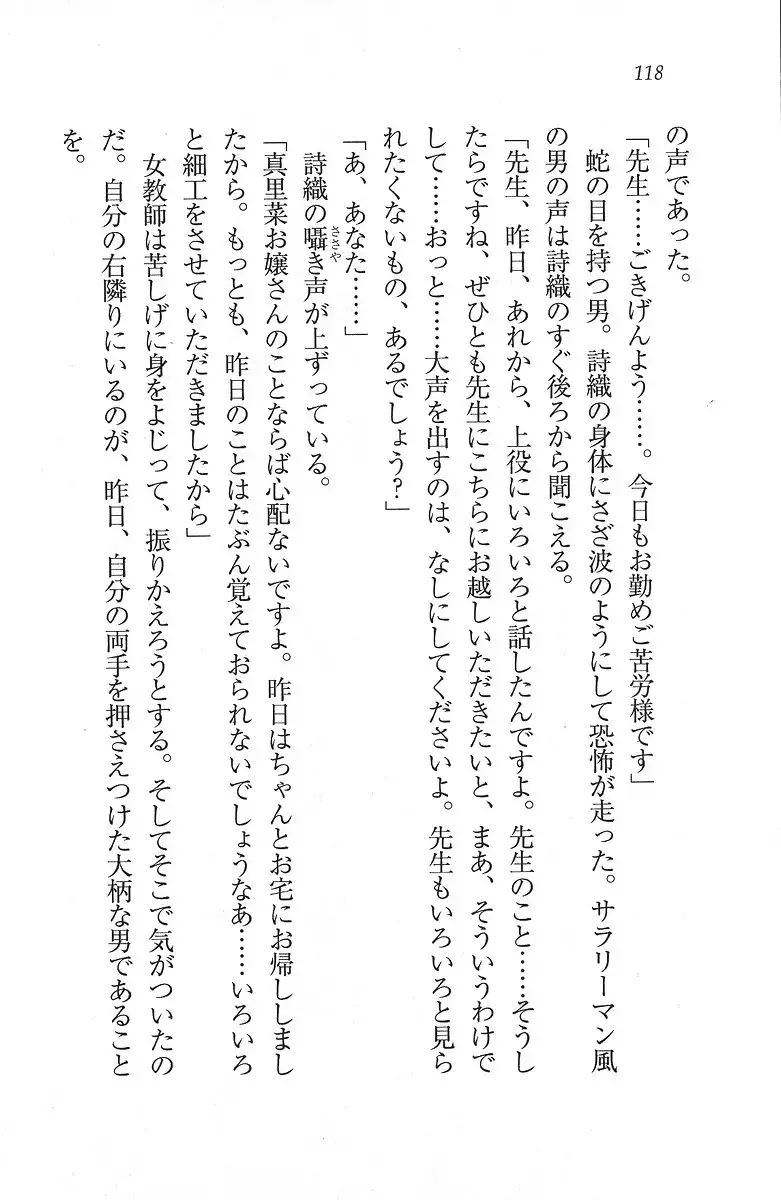 118
の声であった。
「先生……ごきげんよう……。今日もお勤めご苦労様です」
蛇の目を持つ男。詩織の身体にさざ波のようにして恐怖が走った。サラリーマン風
の男の声は詩織のすぐ後ろから聞こえる。
「先生、昨日、あれから、上役にいろいろと話したんですよ。先生のこと……そうし
たらですね、ぜひとも先生にこちらにお越しいただきたいと、まあ、そういうわけで
して……おっと……大声を出すのは、なしにしてくださいよ。先生もいろいろと見ら
れたくないもの、あるでしょう？」
「あ、あなた……」
詩織の囁き声が上ずっている。
ささや
「真里菜お嬢さんのことならば心配ないですよ。昨日はちゃんとお宅にお帰ししまし
たから。もっとも、昨日のことはたぶん覚えておられないでしょうなあ……いろいろ
と細工をさせていただきましたから」
女教師は苦しげに身をよじって、振りかえろうとする。そしてそこで気がついたの
だ。自分の右隣りにいるのが、昨日、自分の両手を押さえつけた大柄な男であること
を。